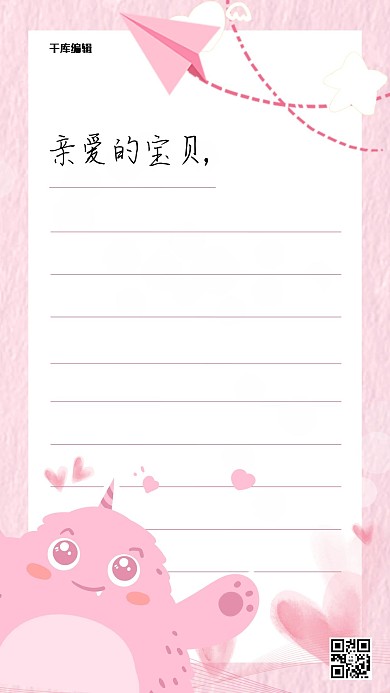 千库编辑
亲爱的宝贝，